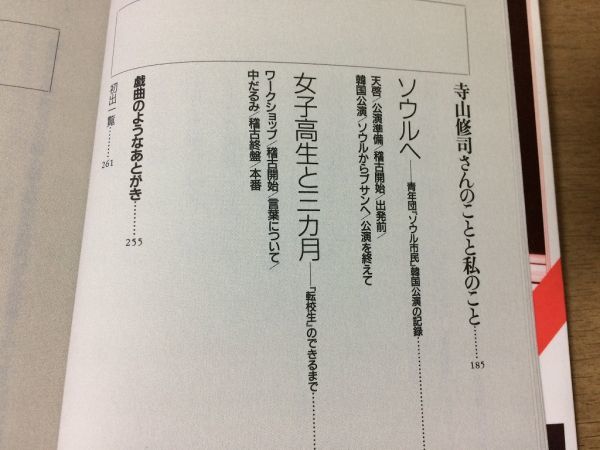 寺山修司さんのことと私のこと………185
ソウルへ——青年団『ソウル市民』韓国公演の記録………
天啓/公演準備/稽古開始/出発前/
韓国公演/ソウルからプサンへ/公演を終えて
女子高生と三カ月——『転校生』のできるまで………
ワークショップ/稽古開始/言葉について/
中だるみ/稽古終盤/本番
戯曲のようなあとがき………255
初出一覧………261